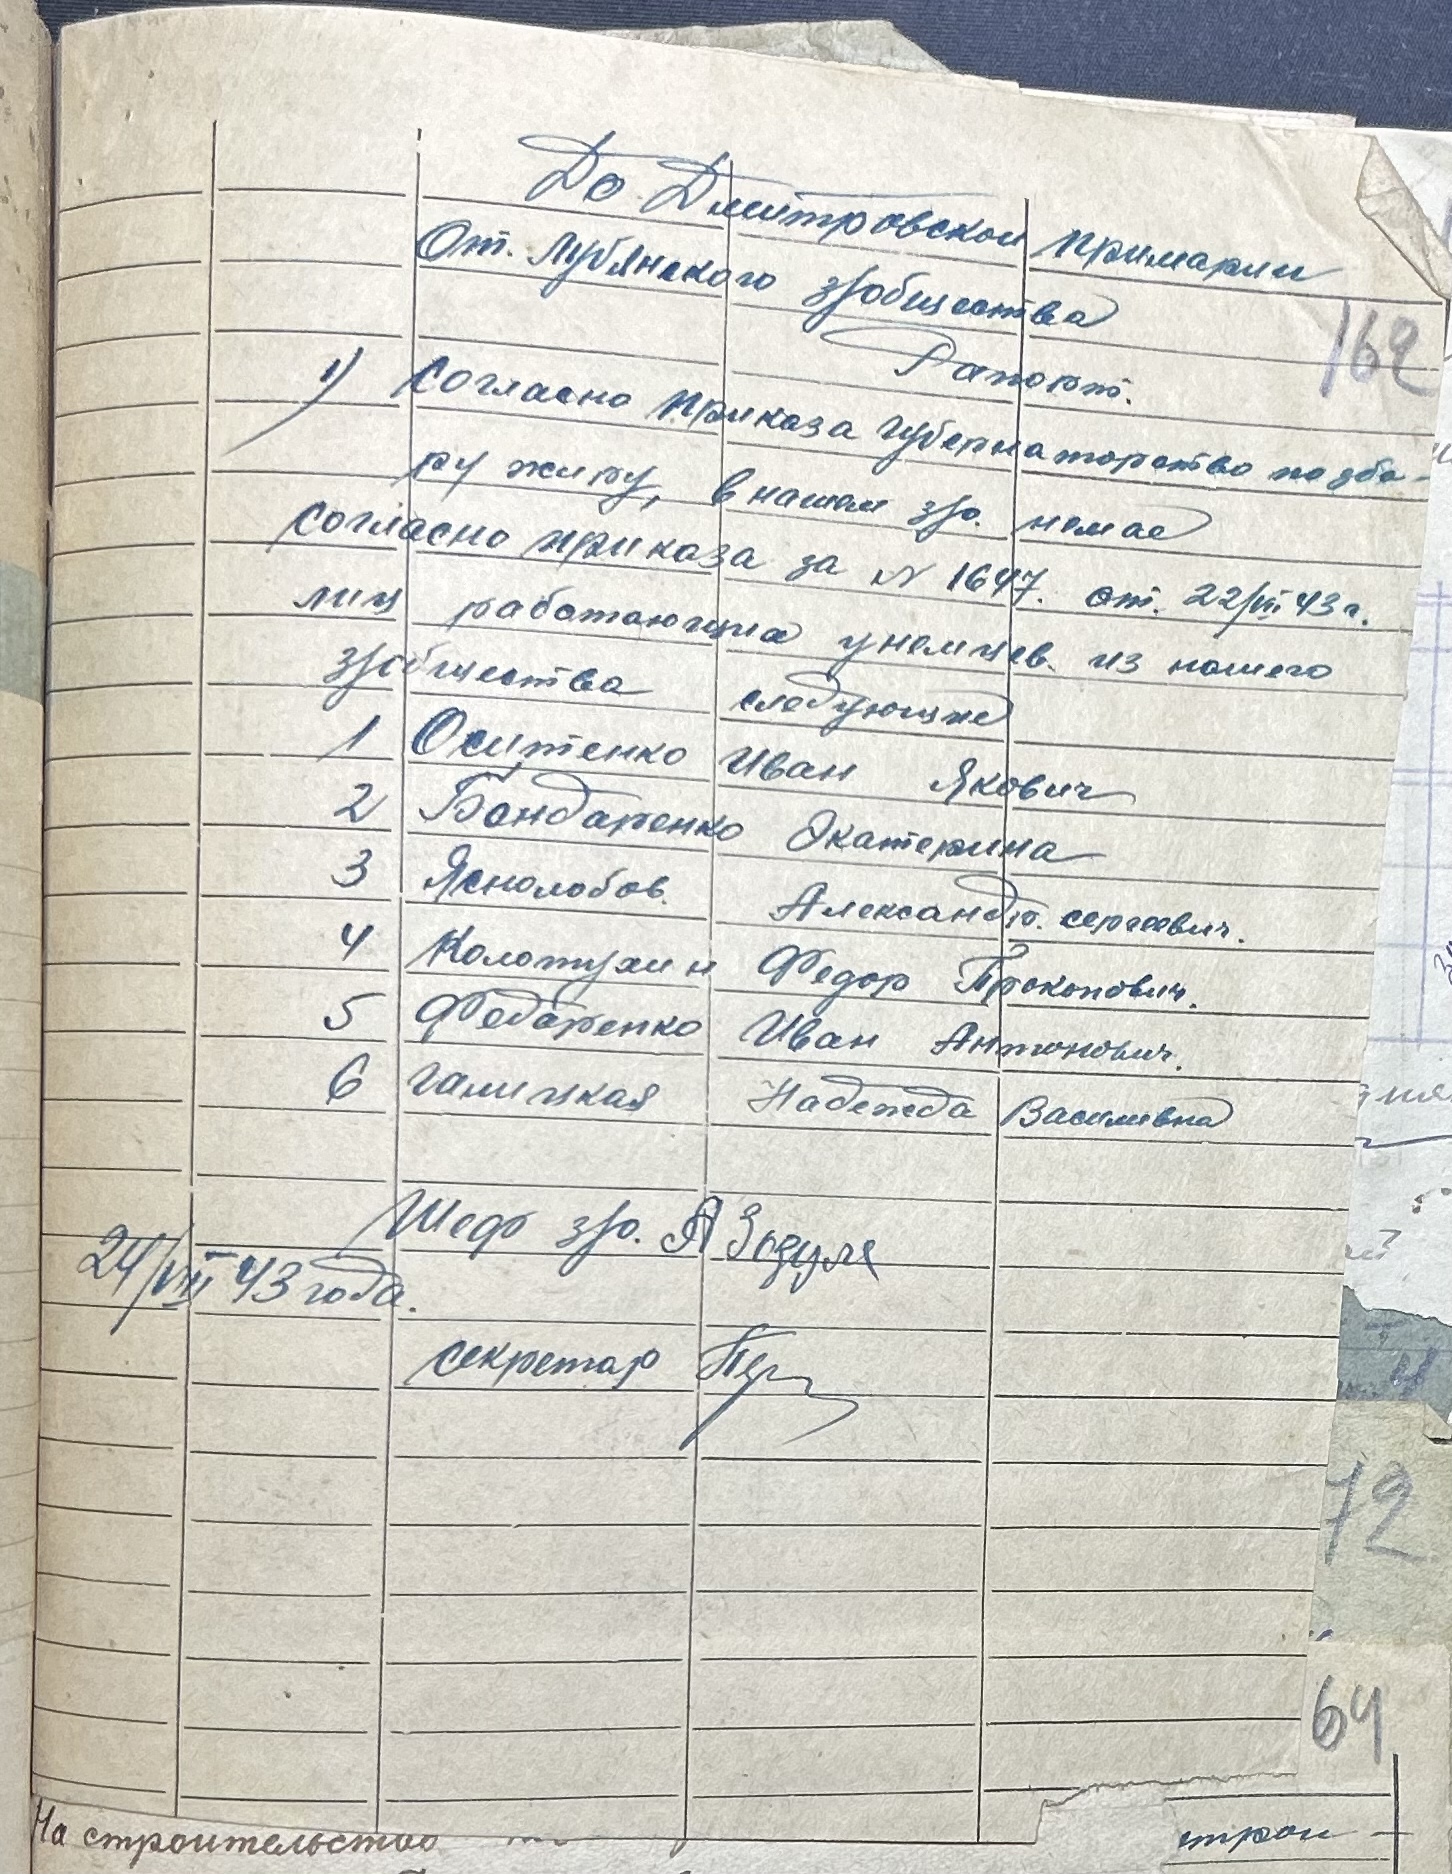 До Дмитровской примарии
От. Лубянского з/общества
Рапорт.
162
1) Согласно приказа Губернаторство по збо-
ру жиру, в нашем з/о. немае
Согласно приказа за № 1647. от. 22/VII 43 г.
лиц работающих у немцев. из нашего
з/общества следующие
1 Осипенко Иван Якович
2 Бондаренко Екатерина
3 Яснолобов. Александр. сергеевич.
4 Колотухин Федор Прокопович.
5 Федоренко Иван Антонович.
6 Галицкая Надежда Василивна
Шеф з/о. А Зозуля
24/VIII 43 года.
секретар
72
64
На строительство